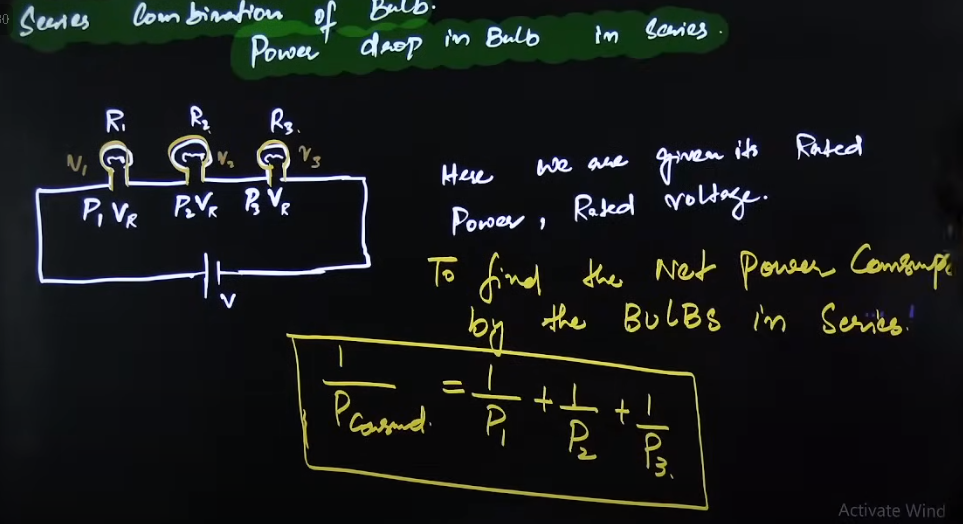 Series Combination of Bulb.
Power drop in Bulb in series.
R₁ R₂ R₃.
V₁ V₂ V₃
P₁ V_R P₂ V_R P₃ V_R
V
Here we are given its Rated
Power, Rated voltage.
To find the Net Power Consump
by the BULBS in Series.
1/P Consumd. = 1/P₁ + 1/P₂ + 1/P₃.
Activate Wind